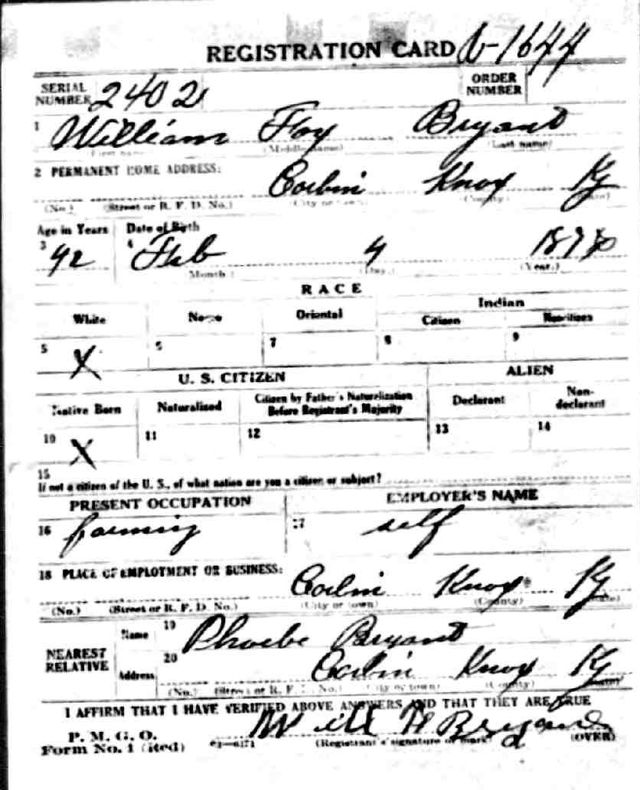 REGISTRATION CARD 6-1644
SERIAL NUMBER 2402 ORDER NUMBER
1 William Foy Bryant
(First name) (Middle name) (Last name)
2 PERMANENT HOME ADDRESS: Corbin Knox Ky
(No.) (Street or R. F. D. No.) (City or town) (County) (State)
Age in Years Date of Birth
3 42 4 Feb 4
(Month) (Day) (Year)
RACE
White Negro Oriental Indian
Citizen Noncitizen
5 X 6 7 8 9
U. S. CITIZEN ALIEN
Native Born Naturalized Citizen by Father's Naturalization Before Registrant's Majority Declarant Non-declarant
10 X 11 12 13 14
15
If not a citizen of the U. S., of what nation are you a citizen or subject?
PRESENT OCCUPATION EMPLOYER'S NAME
16 farming 17 self
18 PLACE OF EMPLOYMENT OR BUSINESS: Corbin Knox Ky
(No.) (Street or R. F. D. No.) (City or town) (County) (State)
NEAREST RELATIVE Name 19 Phoebe Bryant
Address 20 Corbin Knox Ky
(No.) (Street or R. F. D. No.) (City or town) (County) (State)
I AFFIRM THAT I HAVE VERIFIED ABOVE ANSWERS AND THAT THEY ARE TRUE
P. M. G. O.
Form No. 1 (Red) Will Bryant
(Registrant's signature or mark) (OVER)